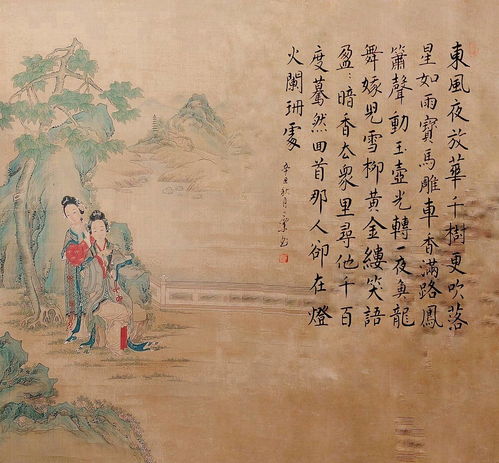 東風夜放華千樹更吹落
星如雨寶馬雕車香滿路鳳
簫聲動玉壺光轉一夜魚龍
舞娥兒雪柳黃金縷笑語
盈〻暗香去衆里尋他千百
度驀然回首那人卻在燈
火闌珊處
辛丑秋月